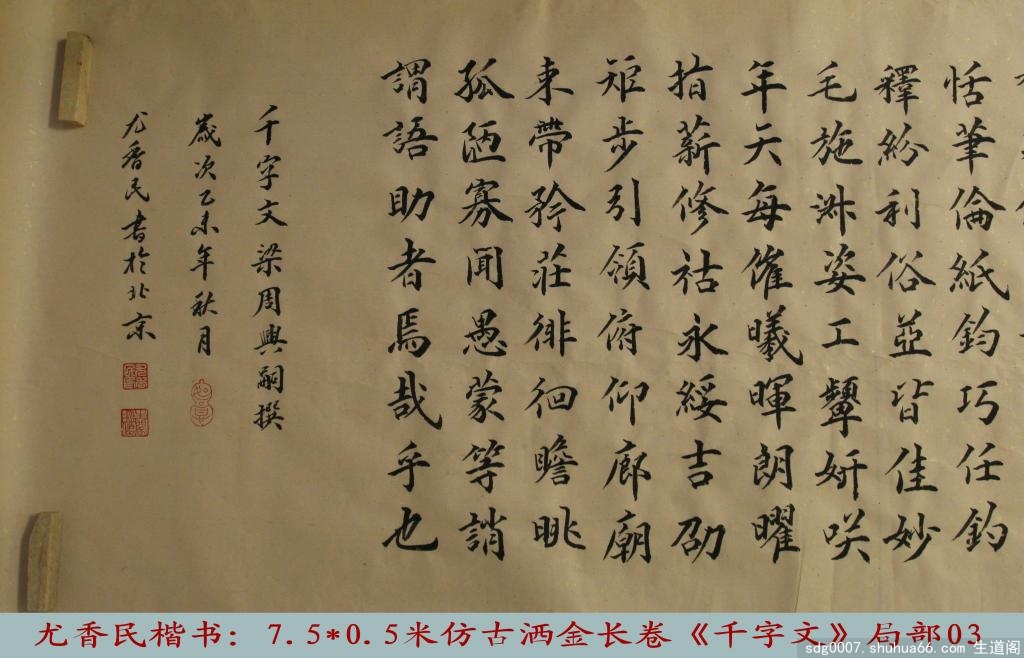 恬筆倫紙鈞巧任釣
釋紛利俗並皆佳妙
毛施淑姿工顰妍咲
年矢每催曦暉朗曜
指薪修祜永綏吉劭
矩步引領俯仰廊廟
束帶矜莊徘徊瞻眺
孤陋寡聞愚蒙等誚
謂語助者焉哉乎也
千字文梁周興嗣撰
歲次乙未年秋月
尤香民書於北京
尤香民楷书：7.5*0.5米仿古洒金长卷《千字文》局部03
sdg0007.shuhua66.com 生道阁